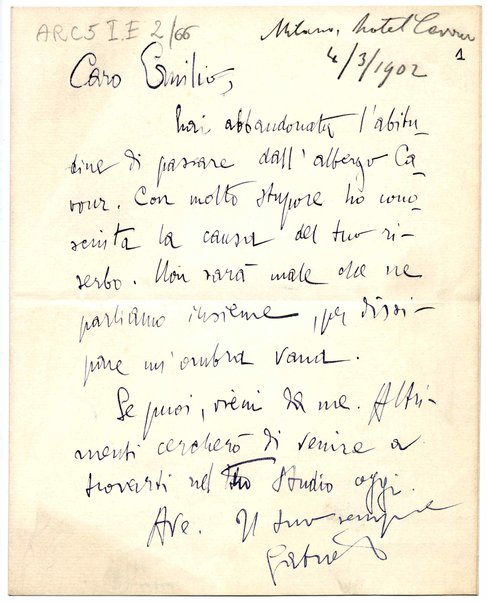 ARC5 I.E 2/66
Milano, hotel Cavour
4/3/1902
1
Caro Emilio,
hai abbandonata l'abitu-
dine di passare dall'albergo Ca-
vour. Con molto stupore ho cono-
sciuta la causa del tuo ri-
serbo. Non sarà male che ne
parliamo insieme, per dissi-
pare un'ombra vana.
Se puoi, vieni da me. Altri-
menti cercherò di venire a
trovarti nel tuo studio oggi.
Ave. Il tuo sempre
Gabriel